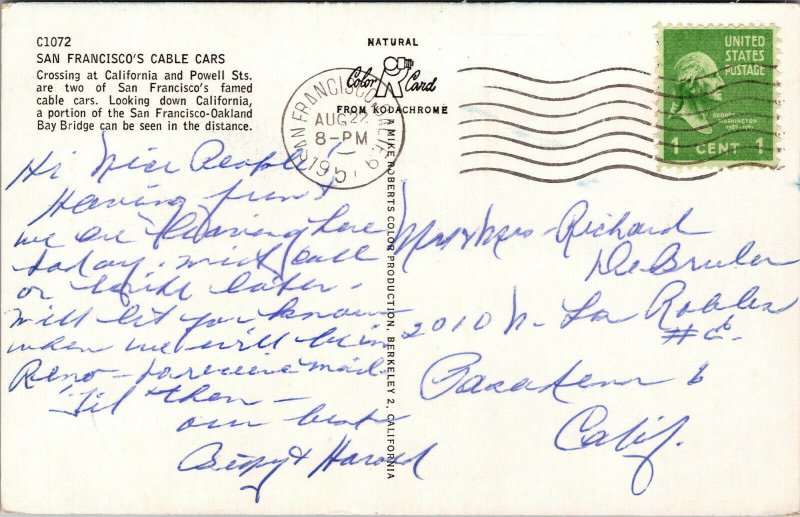 C1072
SAN FRANCISCO'S CABLE CARS
Crossing at California and Powell Sts.
are two of San Francisco's famed
cable cars. Looking down California,
a portion of the San Francisco-Oakland
Bay Bridge can be seen in the distance.
NATURAL
Color Card
FROM KODACHROME
SAN FRANCISCO, CALIF.
AUG 22
8-PM
195
UNITED
STATES
POSTAGE
GEORGE
WASHINGTON
1789-1797
1 CENT 1
Hi Nice People!
Having fun!
we are leaving here
today. will call
or write later.
Will let you know
when we will be in
Reno - to receive mail.
'Til then -
our best
Betty & Harold
A MIKE ROBERTS COLOR PRODUCTION, BERKELEY 2, CALIFORNIA
Mr & Mrs Richard
DeBruler
2010 N. Los Robles
#6
Pasadena 6
Calif.